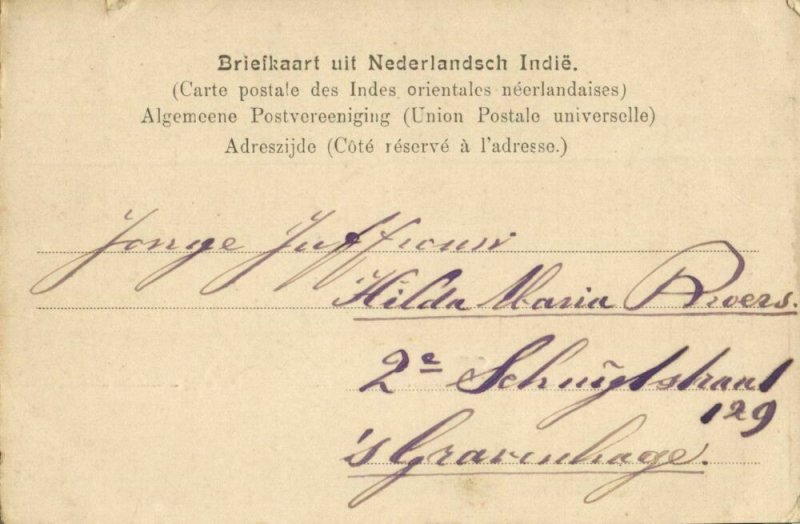 Briefkaart uit Nederlandsch Indië.
(Carte postale des Indes orientales néerlandaises)
Algemeene Postvereeniging (Union Postale universelle)
Adreszijde (Côté réservé à l'adresse.)
Jonge Juffrouw
Hilda Maria
2e Schuytstraat
129
's Gravenhage.